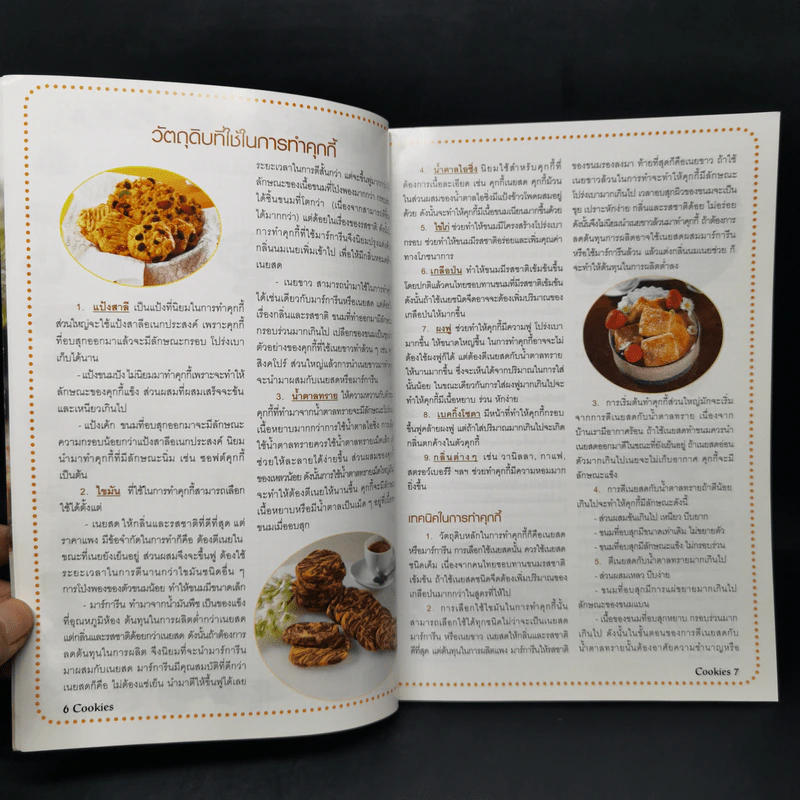 วัตถุดิบที่ใช้ในการทำคุกกี้
1. แป้งสาลี เป็นแป้งที่นิยมในการทำคุกกี้
ส่วนใหญ่จะใช้แป้งสาลีอเนกประสงค์ เพราะคุกกี้
ที่อบสุกออกมาแล้วจะมีลักษณะกรอบ โปร่งเบา
เก็บได้นาน
- แป้งขนมปัง ไม่นิยมมาทำคุกกี้เพราะจะทำให้
ลักษณะของคุกกี้แข็ง ส่วนผสมที่ผสมเสร็จจะข้น
และเหนียวเกินไป
- แป้งเค้ก ขนมที่อบสุกออกมาจะมีลักษณะ
ความกรอบน้อยกว่าแป้งสาลีอเนกประสงค์ นิยม
นำมาทำคุกกี้ที่มีลักษณะนิ่ม เช่น ซอฟต์คุกกี้
เป็นต้น
2. ไขมัน ที่ใช้ในการทำคุกกี้สามารถเลือก
ใช้ได้ตั้งแต่
- เนยสด ให้กลิ่นและรสชาติที่ดีที่สุด แต่
ราคาแพง มีข้อจำกัดในการทำก็คือ ต้องตีเนยใน
ขณะที่เนยยังเย็นอยู่ ส่วนผสมจึงจะขึ้นฟู ต้องใช้
ระยะเวลาในการตีนานกว่าไขมันชนิดอื่น ๆ
การโปงพองของตัวขนมน้อย ทำให้ขนมมีขนาดเล็ก
- มาร์การีน ทำมาจากน้ำมันพืช เป็นของแข็ง
ที่อุณหภูมิห้อง ต้นทุนในการผลิตต่ำกว่าเนยสด
แต่กลิ่นและรสชาติด้อยกว่าเนยสด ดังนั้นถ้าต้องการ
ลดต้นทุนในการผลิต จึงนิยมที่จะนำมาร์การีน
มาผสมกับเนยสด มาร์การีนมีคุณสมบัติที่ดีกว่า
เนยสดก็คือ ไม่ต้องแช่เย็น นำมาตีให้ขึ้นฟูได้เลย
ระยะเวลาในการตีสั้นกว่า แต่จะขึ้นฟูมากกว่า
ลักษณะของเนื้อขนมที่โปงพองมากกว่า
ได้ชิ้นขนมที่โตกว่า (เนื่องจากสามารถตี
ได้มากกว่า) แต่ด้อยในเรื่องของรสชาติ ดังนั้น
การทำคุกกี้ที่ใช้มาร์การีนจึงนิยมปรุงแต่ง
กลิ่นนมเนยเพิ่มเข้าไป เพื่อให้มีกลิ่นหอม
เนยสด
- เนยขาว สามารถนำมาใช้ใน
ได้เช่นเดียวกับมาร์การีนหรือเนยสด แต่
เรื่องกลิ่นและรสชาติ ขนมที่ทำออกมา
กรอบร่วนมากเกินไป เปลือกของขนมเป็น
ตัวอย่างของคุกกี้ที่ใช้เนยขาวทำล้วน ๆ เช่น
สิงคโปร์ ส่วนใหญ่แล้วการนำเนยขาวมา
จะนำมาผสมกับเนยสดหรือมาร์การีน
3. น้ำตาลทราย ให้ความหวานกับตัว
คุกกี้ที่ทำมาจากน้ำตาลทรายจะมีลักษณะ
เนื้อหยาบมากกว่าการใช้น้ำตาลไอซิ่ง การ
ใช้น้ำตาลทรายควรใช้น้ำตาลทรายเม็ดเล็ก
ช่วยให้ละลายได้ง่ายขึ้น ส่วนผสมของ
มีของเหลวน้อย ดังนั้นการใช้น้ำตาลทรายเม็ดใหญ่
จะทำให้ต้องตีเนยให้นานขึ้น คุกกี้จะมี
เนื้อหยาบหรือมีน้ำตาลเป็นเม็ด ๆ อยู่ที่
ขนมเมื่ออบสุก
6 Cookies
4. น้ำตาลไอซิ่ง นิยมใช้สำหรับคุกกี้ที่
ต้องการเนื้อละเอียด เช่น คุกกี้เนยสด คุกกี้ม้วน
ในส่วนผสมของน้ำตาลไอซิ่งมีแป้งข้าวโพดผสมอยู่
ด้วย ดังนั้นจะทำให้คุกกี้มีเนื้อขนมเนียนมากขึ้นด้วย
5. ไข่ไก่ ช่วยทำให้ขนมมีโครงสร้างโปร่งเบา
กรอบ ช่วยทำให้ขนมมีรสชาติอร่อยและเพิ่มคุณค่า
ทางโภชนาการ
6. เกลือป่น ทำให้ขนมมีรสชาติเข้มข้นขึ้น
โดยปกติแล้วคนไทยชอบทานขนมที่มีรสชาติเข้มข้น
ดังนั้นถ้าใช้เนยชนิดจืดอาจจะต้องเพิ่มปริมาณของ
เกลือป่นให้มากขึ้น
7. ผงฟู ช่วยทำให้คุกกี้มีความฟู โปร่งเบา
มากขึ้น ให้ขนาดใหญ่ขึ้น ในการทำคุกกี้อาจจะไม่
ต้องใช้ผงฟูก็ได้ แต่ต้องตีเนยสดกับน้ำตาลทราย
ให้นานมากขึ้น ซึ่งจะเห็นได้จากปริมาณในการใส่
นั้นน้อย ในขณะเดียวกันการใส่ผงฟูมากเกินไปจะ
ทำให้คุกกี้ที่มีเนื้อหยาบ ร่วน หักง่าย
8. เบคกิ้งโซดา มีหน้าที่ทำให้คุกกี้กรอบ
ขึ้นฟูคล้ายผงฟู แต่ถ้าใส่ปริมาณมากเกินไปจะเกิด
กลิ่นตกค้างในตัวคุกกี้
9. กลิ่นต่าง ๆ เช่น วานิลลา, กาแฟ,
สตรอว์เบอร์รี ฯลฯ ช่วยทำคุกกี้มีความหอมมาก
ยิ่งขึ้น
เทคนิคในการทำคุกกี้
1. วัตถุดิบหลักในการทำคุกกี้ก็คือเนยสด
หรือมาร์การีน การเลือกใช้เนยสดนั้น ควรใช้เนยสด
ชนิดเค็ม เนื่องจากคนไทยชอบทานขนมที่มีรสชาติ
เข้มข้น ถ้าใช้เนยสดชนิดจืดต้องเพิ่มปริมาณของ
เกลือป่นมากกว่าในสูตรที่ให้ไป
2. การเลือกใช้ไขมันในการทำคุกกี้นั้น
สามารถเลือกใช้ได้ทุกชนิดไม่ว่าจะเป็นเนยสด
มาร์การีน หรือเนยขาว เนยสดให้กลิ่นและรสชาติ
ดีที่สุด แต่ต้นทุนในการผลิตแพง มาร์การีนให้รสชาติ
ของขนมรองลงมา ท้ายที่สุดก็คือเนยขาว ถ้าใช้
เนยขาวล้วนในการทำจะทำให้คุกกี้มีลักษณะ
โปร่งเบามากเกินไป เวลาอบสุกผิวของขนมจะเป็น
ขุย เปราะหักง่าย กลิ่นและรสชาติด้อย ไม่อร่อย
ดังนั้นจึงไม่นิยมนำเนยขาวล้วนมาทำคุกกี้ ถ้าต้องการ
ลดต้นทุนการผลิตอาจใช้เนยสดผสมมาร์การีน
หรือใช้มาร์การีนล้วน แล้วแต่งกลิ่นนมเนยช่วย ก็
จะทำให้ต้นทุนในการผลิตต่ำลง
3. การเริ่มต้นทำคุกกี้ส่วนใหญ่มักจะเริ่ม
จากการตีเนยสดกับน้ำตาลทราย เนื่องจาก
บ้านเรามีอากาศร้อน ถ้าใช้เนยสดทำขนมควรนำ
เนยสดออกมาตีในขณะที่ยังเย็นอยู่ ถ้าเนยสดอ่อน
ตัวมากเกินไปจะไม่เก็บอากาศ คุกกี้จะมี
ลักษณะแข็ง
4. การตีเนยสดกับน้ำตาลทรายถ้าตีน้อย
เกินไปจะทำให้คุกกี้มีลักษณะดังนี้
- ส่วนผสมข้นเกินไป เหนียว บีบยาก
- ขนมที่อบสุกมีขนาดเท่าเดิม ไม่ขยายตัว
- ขนมที่อบสุกมีลักษณะแข็ง ไม่กรอบร่วน
5. ตีเนยสดกับน้ำตาลทรายมากเกินไป
- ส่วนผสมเหลว บีบง่าย
- ขนมที่อบสุกมีการแผ่ขยายมากเกินไป
ลักษณะของขนมแบน
- เนื้อของขนมที่อบสุกหยาบ กรอบร่วนมาก
เกินไป ดังนั้นในขั้นตอนของการตีเนยสดกับ
น้ำตาลทรายนั้นต้องอาศัยความชำนาญหรือ
Cookies 7